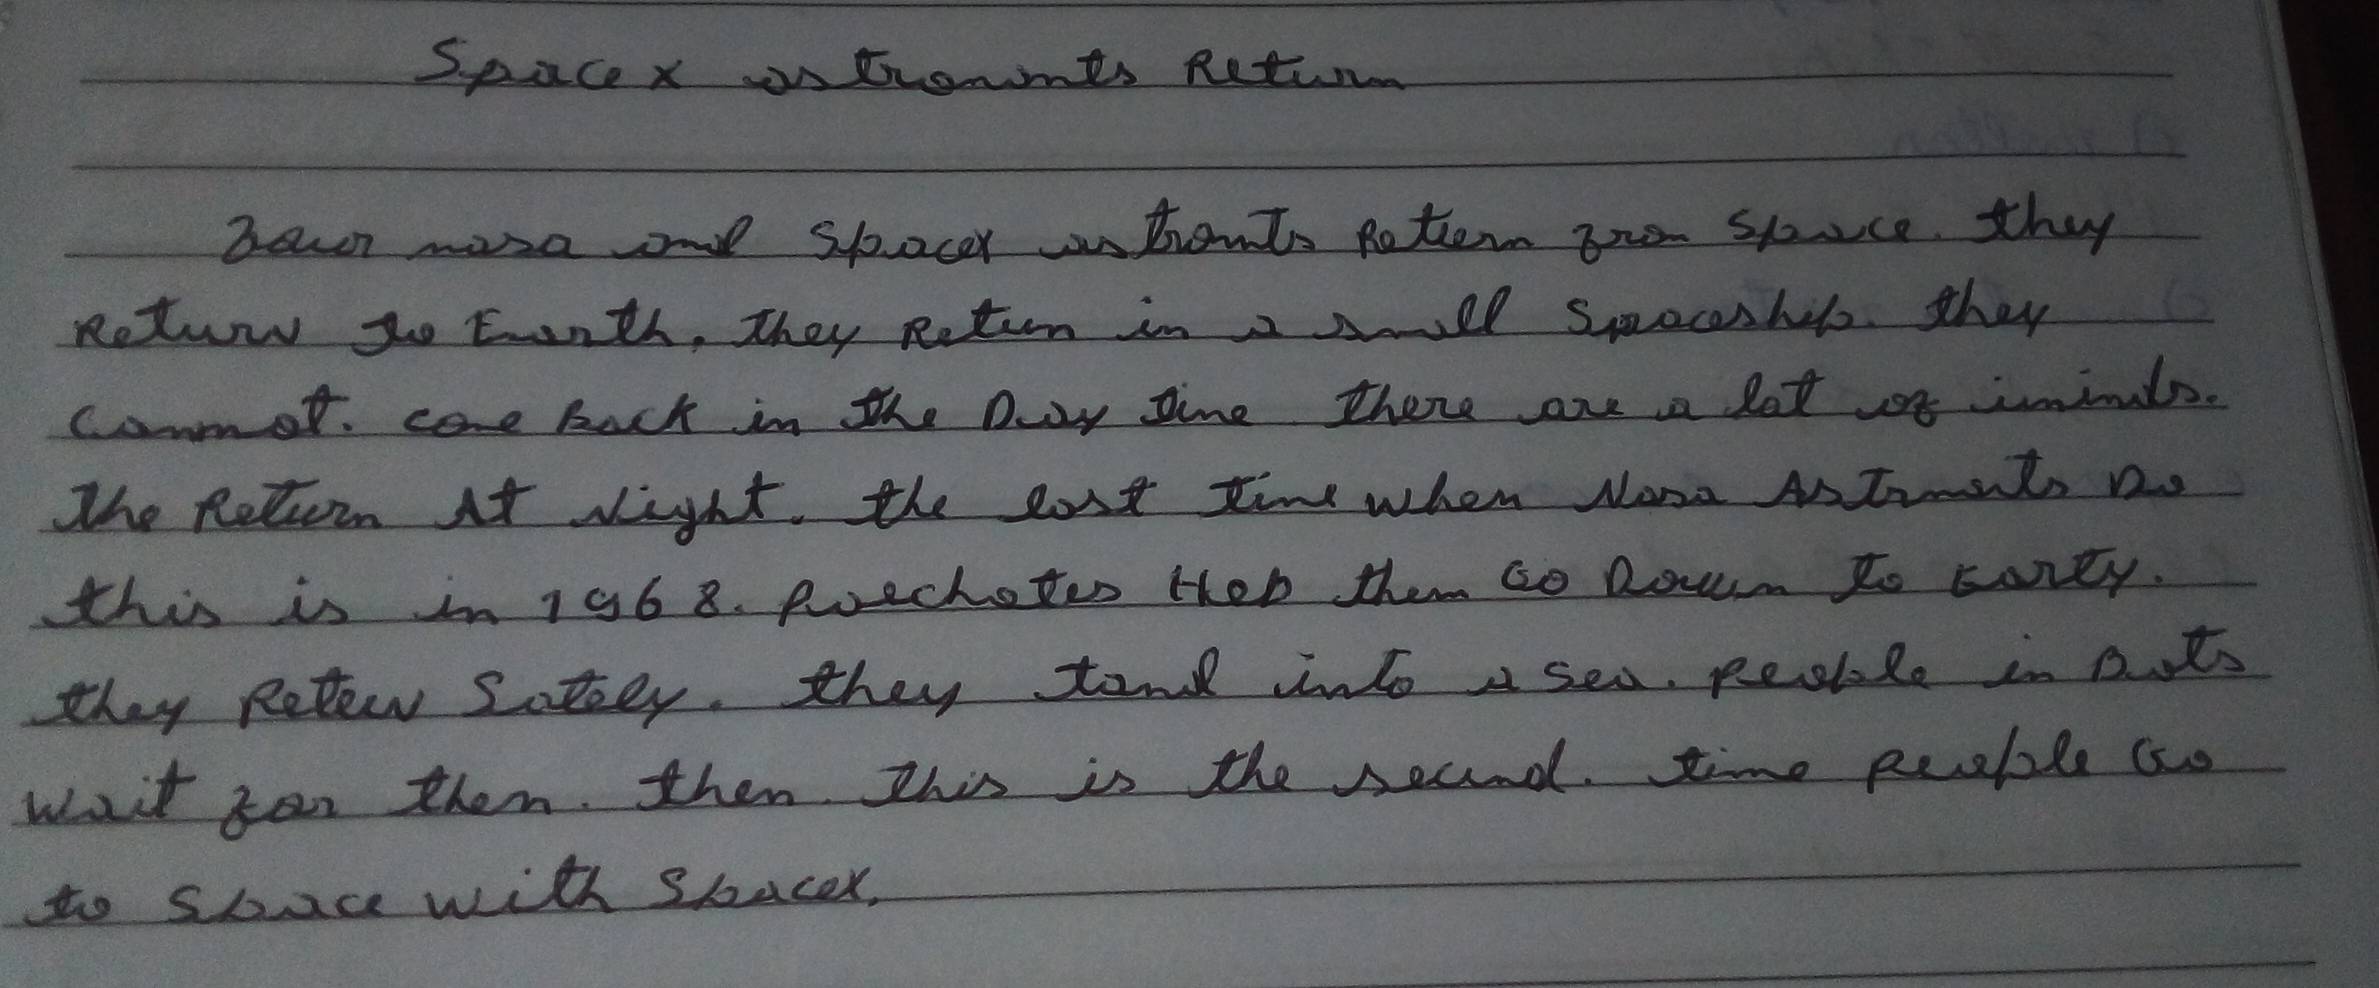 Spacex astronints Return
Four nasa and Spacex astronts Retiern from Space. they
Return to Earth, they Retun in a small Spaceship. they
cannot. cone back in the Day time there are a lot of iminds.
the Return At Night. the last time when Nasa Astrnonts Do
this is in 1968. Parechotes Heb them Go Down to Earty.
they Reteu Safely. they tand into a sea. People in Bots
wait for then. then. this is the secund. time people Go
to Space with Spacex.